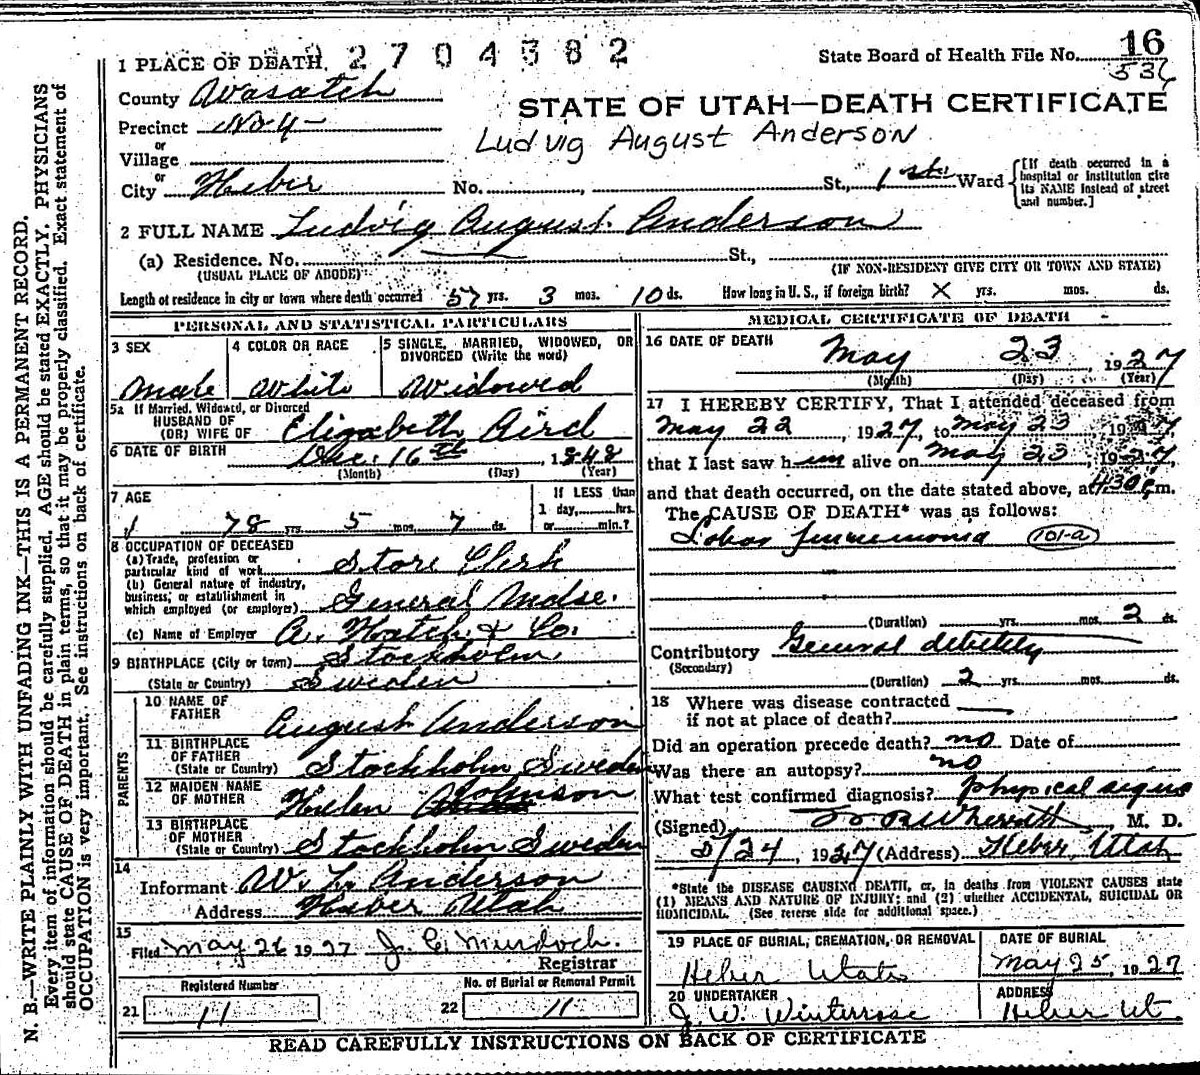 N. B.—WRITE PLAINLY WITH UNFADING INK—THIS IS A PERMANENT RECORD.
Every item of information should be carefully supplied. AGE should be stated EXACTLY. PHYSICIANS
should state CAUSE OF DEATH in plain terms, so that it may be properly classified. Exact statement of
OCCUPATION is very important. See instructions on back of certificate.
2704382
State Board of Health File No. 16
536
1 PLACE OF DEATH
County Wasatch
STATE OF UTAH—DEATH CERTIFICATE
Precinct No 4
Ludvig August Anderson
or
Village
or
City Heber No. , St., 1st Ward
[If death occurred in a
hospital or institution give
its NAME instead of street
and number.]
2 FULL NAME Ludvig August Anderson
(a) Residence. No. St.,
(USUAL PLACE OF ABODE) (IF NON-RESIDENT GIVE CITY OR TOWN AND STATE)
Length of residence in city or town where death occurred 57 yrs. 3 mos. 10 ds. How long in U. S., if foreign birth? X yrs. mos. ds.
PERSONAL AND STATISTICAL PARTICULARS
3 SEX
Male
4 COLOR OR RACE
White
5 SINGLE, MARRIED, WIDOWED, OR
DIVORCED (Write the word)
Widowed
5a If Married, Widowed, or Divorced
HUSBAND OF
(OR) WIFE OF Elizabeth Aird
6 DATE OF BIRTH Dec. 16th, 1848
(Month) (Day) (Year)
7 AGE
78 yrs. 5 mos. 7 ds.
If LESS than
1 day, hrs.
or min.?
8 OCCUPATION OF DECEASED
(a) Trade, profession or
particular kind of work Store Clerk
(b) General nature of industry,
business, or establishment in
which employed (or employer) General Mdse.
(c) Name of Employer A. Hatch & Co.
9 BIRTHPLACE (City or town) Stockholm
(State or Country) Sweden
PARENTS
10 NAME OF
FATHER August Anderson
11 BIRTHPLACE
OF FATHER
(State or Country) Stockholm Sweden
12 MAIDEN NAME
OF MOTHER Helen Johnson
13 BIRTHPLACE
OF MOTHER
(State or Country) Stockholm Sweden
14
Informant W. L. Anderson
Address Heber Utah
15
Filed May 26 1927 J. C. Murdoch.
Registrar
Registered Number
21 11
No. of Burial or Removal Permit
22 11
MEDICAL CERTIFICATE OF DEATH
16 DATE OF DEATH
May 23 1927
(Month) (Day) (Year)
17 I HEREBY CERTIFY, That I attended deceased from
May 22, 1927, to May 23 1927
that I last saw h im alive on May 23, 1927,
and that death occurred, on the date stated above, at 4:30 p.m.
The CAUSE OF DEATH* was as follows:
Lobar Pneumonia 101-a
(Duration) yrs. mos. 2 ds.
Contributory General debility
(Secondary)
(Duration) 2 yrs. mos. ds.
18 Where was disease contracted
if not at place of death?
Did an operation precede death? no Date of
Was there an autopsy? no
What test confirmed diagnosis? Physical signs
(Signed) M. D.
5/24, 1927 (Address) Heber, Utah
*State the DISEASE CAUSING DEATH, or, in deaths from VIOLENT CAUSES state
(1) MEANS AND NATURE OF INJURY; and (2) whether ACCIDENTAL, SUICIDAL OR
HOMICIDAL. (See reverse side for additional space.)
19 PLACE OF BURIAL, CREMATION, OR REMOVAL
Heber Utah
DATE OF BURIAL
May 25, 1927
20 UNDERTAKER
J. W. Winterrose
ADDRESS
Heber Ut.
READ CAREFULLY INSTRUCTIONS ON BACK OF CERTIFICATE